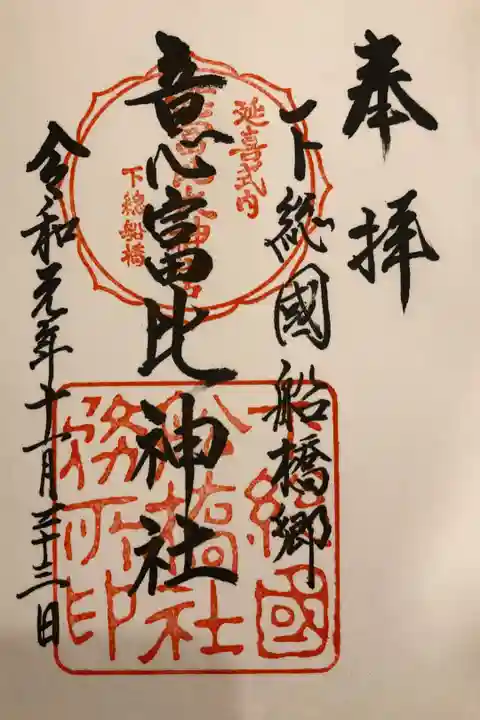 奉拝
下総國船橋郷
意富比神社
令和元年十一月二十三日
延喜式内
下總船橋
下総國
船橋社
務所印